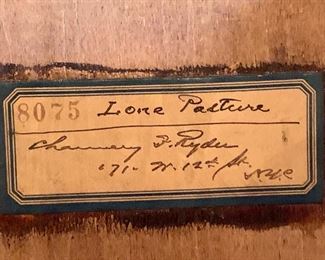 8075 Lone Pasture
Chauncey F. Ryder
171. W. 12th St.
N.Y.C